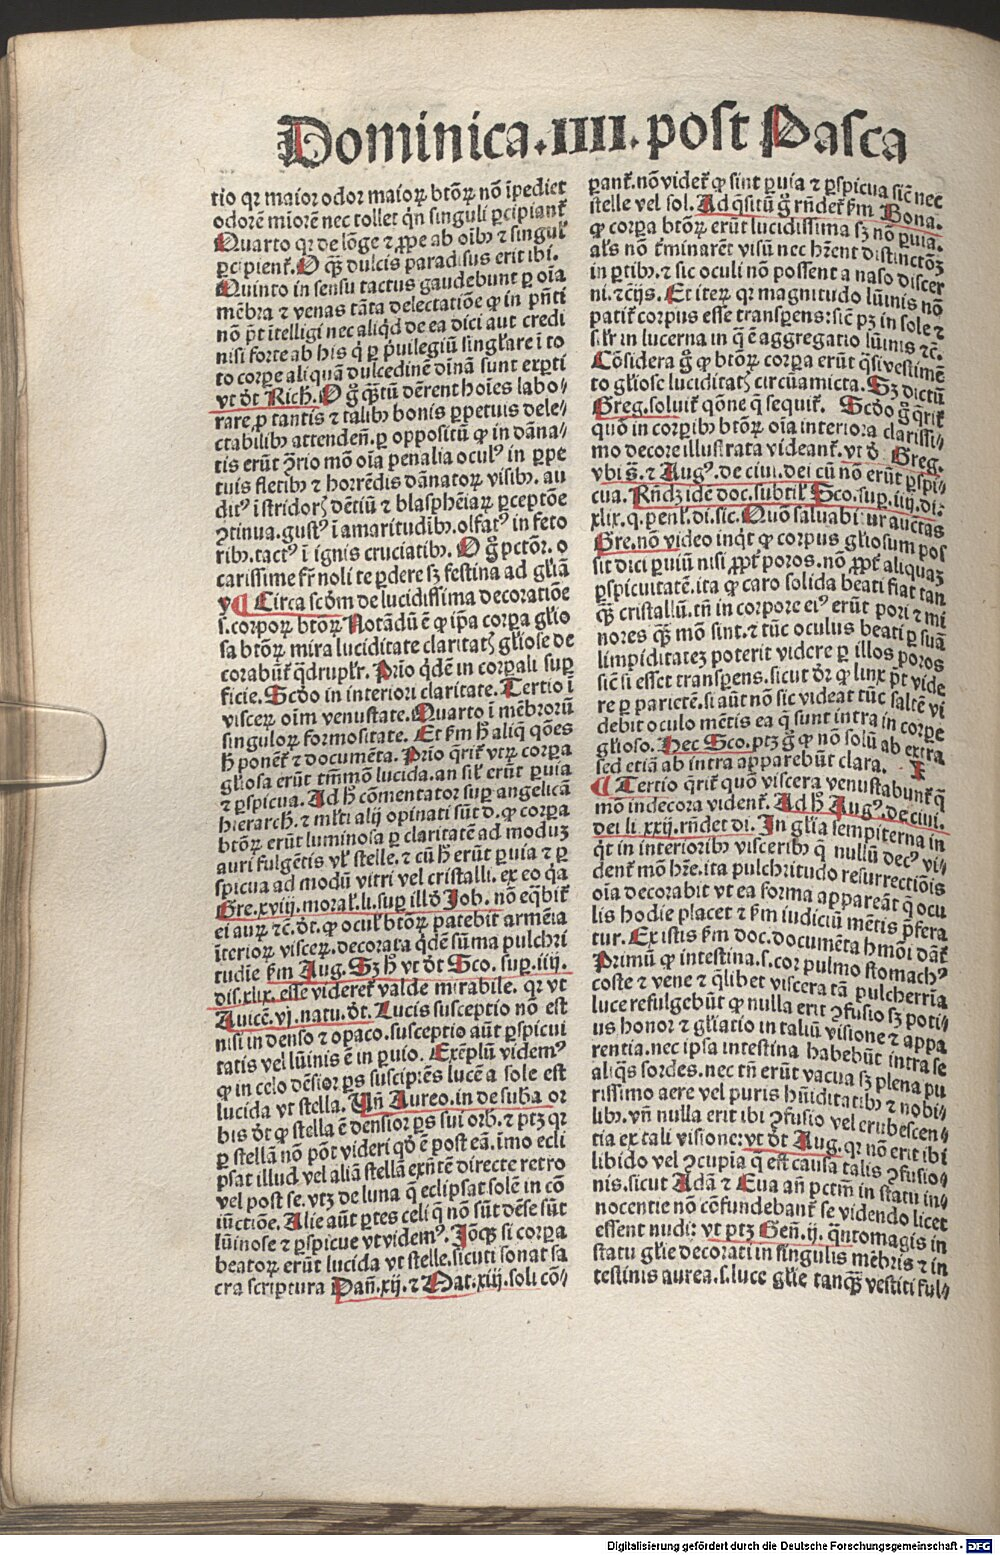 Dominica.IIII.post Pasca
tio qꝛ maior odor maioꝝ btōꝝ nō īpediet
odorē mīorē nec tollet qͥn singuli ꝑcipiant᷑
Quarto qꝛ de lōge ⁊ ꝓpe ab oībꝰ ⁊ singuł
ꝑcipient᷑. O qꝫ̄ dulcis paradisus erit ibi.
Quinto in sensu tactus gaudebunt ꝑ oīa
mēbra ⁊ venas tāta delectatiōe ꝙ in pn̄ti
nō pͭt ītelligi nec aliqͥd de ea dici aut credi
nisi forte ab his qͥ ꝑ pͥuilegiū singłare ī to
to corꝑe aliquā dulcedinē dīnā sunt exꝑti
vt dt̄ Rich. O gͦ qꝫ̄tū dērent hoīes labo⸗
rare ꝓ tantis ⁊ talibꝰ bonis ꝑpetuis dele⸗
ctabilibꝰ attendeñ. ꝑ oppositū ꝙ in dāna⸗
tis erūt ꝯͣrio mō oīa penalia oculꝰ in ꝑpe
tuis fletibꝰ ⁊ horrēdis dānatoꝝ visibꝰ. au
ditꝰ ī stridorꝫ dētiū ⁊ blasphēiaꝝ ꝑceptōe
ꝯtinua. gustꝰ ī amaritudībꝰ. olfatꝰ in feto
ribꝰ. tactꝰ ī ignis cruciatibꝰ. O gͦ pctōꝛ. o
carissime fr̄ noli te ꝑdere sꝫ festina ad głiā
v¶ Circa scd̄m de lucidissima decoratiōe
s. corpoꝝ btōꝝ Notādū ē ꝙ ip̄a corpa głio
sa btōꝝ mira luciditate claritatꝫ głiose de
corabūt᷑ qͣdruplr̄. Prīo qͥdē in corꝑali suꝑ
ficie. Scdō in interiori claritate. Tertio ī
visceꝝ oīm venustate. Quarto ī mēbroꝝū
singuloꝝ formositate. Et ẜm hͦ aliq̄ qōnes
hͥ ponēt᷑ ⁊ documēta. Prīo qͥrit᷑ vtꝝ corꝑa
głiosa erūt tm̄mō lucida. an sił erūt ꝑuia
⁊ ꝑspicua. Ad hͦ cōmentator suꝑ angelicā
hierarch. ⁊ młti alij opinati sūt d. ꝙ corpa
btōꝝ erūt luminosa ꝑ claritatē ad moduꝫ
auri fulgētis vł stelle. ⁊ cū hͦ erūt ꝑuia ⁊ ꝑ
spicua ad modū vitri vel cristalli. ex eo qͥa
Gre. xviij. morał. li. suꝑ illd̄ Job. nō eqͣbit᷑
ei auꝝ ⁊c̄. dt̄. ꝙ oculꝭ btōꝝ patebit armēia
īterioꝝ visceꝝ. decorata qͥdē sūma pulchri
tudīe ẜm Aug. Sꝫ hͦ vt dt̄ Sco. suꝑ. iiij.
dis. xlix. esse videret᷑ valde mirabile. qꝛ vt
Auicē. vj. natu. dt̄. Lucis susceptio nō est
nisi in denso ⁊ opaco. susceptio aūt ꝑspicui
tatis vel lūinis ē in ꝑuio. Exēplū videmꝰ
ꝙ in celo dēsior ꝑs suscipiēs lucē a sole est
lucida vt stella. Vñ Aureo. in de suba or
bis dt̄ ꝙ stella ē densior ꝑs sui orbꝭ. ⁊ ptꝫ qꝛ
ꝑ stellā nō pōt videri qd̄ ē post eā. īmo ecli
psat illud. vel aliā stellā exn̄tē directe retro
vel post se. vtꝫ de luna q̄ eclipsat solē in cō
iūctiōe. Alie aūt ꝑtes celi q̄ nō sūt dēse sūt
lūinose ⁊ ꝑspicue vt videmꝰ. Jōqꝫ si corꝑa
beatoꝝ erūt lucida vt stelle. sicuti sonat sa
cra scriptura Dañ. xij. ⁊ Mat. xiij. soli cō⸗
ꝑant᷑. nō videt᷑ ꝙ sint ꝑuia ⁊ ꝑspicua sic̄ nec
stelle vel sol. Ad qͣsitū gͦ rn̄det᷑ ẜm Bona.
ꝙ corꝑa btōꝝ erūt lucidissima sꝫ nō ꝑuia.
als nō t᷑minarēt visū nec hr̄ent distinctōꝫ
in ꝑtibꝰ. ⁊ sic oculi nō possent a naso discer
ni. ⁊ c̄ijs. Et iteꝝ qꝛ magnitudo lūinis nō
patit᷑ corpus esse transꝑens: sic̄ pꝫ in sole ⁊
sił͛ in lucerna in qͣ ē aggregatio lūinis ⁊c̄.
Cōsidera gͦ ꝙ btōꝝ corꝑa erūt qͣsi vestimē
to głiose luciditatꝫ circūamicta. Sꝫ dictū
Greg. soluit᷑ qōne q̄ sequit᷑. Scd̄o gͦ qͥrit᷑
quō in corꝑibꝰ btōꝝ oīa interiora clarissi⸗
mo decore illustrata videant᷑. vt d̄ Greg.
vbi s̄. ⁊ Augꝰ. de ciui. dei cū nō erūt ꝑspi⸗
cua. Rn̄dꝫ idē doc. subtił Sco. suꝑ. iiij. di.
xlix. q. penł. di. sic. Quō saluabitur auctas
Gre. nō video inqͥt ꝙ corpus głiosum pos
sit dici ꝑuiū nisi ꝓpt᷑ poros. nō ꝓpt᷑ aliquaꝫ
ꝑspicuitatē. ita ꝙ caro solida beati fiat tan
qꝫ̄ cristallū. tn̄ in corpore eiꝰ erūt pori ⁊ mi
nores qꝫ̄ mō sint. ⁊ tūc oculus beati ꝑ suā
limpiditateꝫ poterit videre ꝑ illos poros
sic̄ si esset transꝑens. sicut dr̄ ꝙ linx pͭt vide
re ꝑ parietē. si aūt nō sic videat tūc saltē vi
debit oculo mētis ea q̄ sunt intra in corꝑe
głioso. Hec Sco. ptꝫ gͦ ꝙ nō solū ab extra
sed etiā ab intra apparebūt clara.
¶ Tertio qͥrit᷑ quō viscera venustabunt᷑ q̄
mō indecora vident᷑. Ad hͦ Augꝰ. de ciui.
dei li. xxij. rn̄det di. In głia sempiterna in
qͥt in interioribꝰ visceribꝰ q̄ nullū decꝰ vi⸗
dent᷑ mō hr̄e. ita pulchritudo resurrectiōis
oīa decorabit vt ea forma appareāt q̄ ocu
lis hodie placet ⁊ ẜm iudiciū mētis p̄fera
tur. Ex istis ẜm doc. documēta hmōi dāt᷑
Primū ꝙ intestina. s. cor pulmo stomachꝰ
coste ⁊ vene ⁊ qͣlibet viscera tā pulcherrīa
luce refulgebūt ꝙ nulla erit ꝯfusio sꝫ poti⸗
us honor ⁊ głiatio in taliū visione ⁊ appa
rentia. nec ipsa intestina habebūt intra se
aliqͣs sordes. nec tn̄ erūt vacua sꝫ plena pu
rissimo aere vel puris hūiditatibꝰ ⁊ nobi⸗
libꝰ. vñ nulla erit ibi ꝯfusio vel erubescen⸗
tia ex tali visione: vt dt̄ Aug. qꝛ nō erit ibi
libido vel ꝯcupīa q̄ est causa talis ꝯfusio⸗
nis. sicut Adā ⁊ Eua añ pctm̄ in statu in⸗
nocentie nō cōfundebant᷑ se videndo licet
essent nudi: vt ptꝫ Geñ. ij. qͣntomagis in
statu głie decorati in singulis mēbris ⁊ in
testinis aurea. s. luce głie tanqꝫ̄ vestiti ful⸗
Digitalisierung gefördert durch die Deutsche Forschungsgemeinschaft - DFG